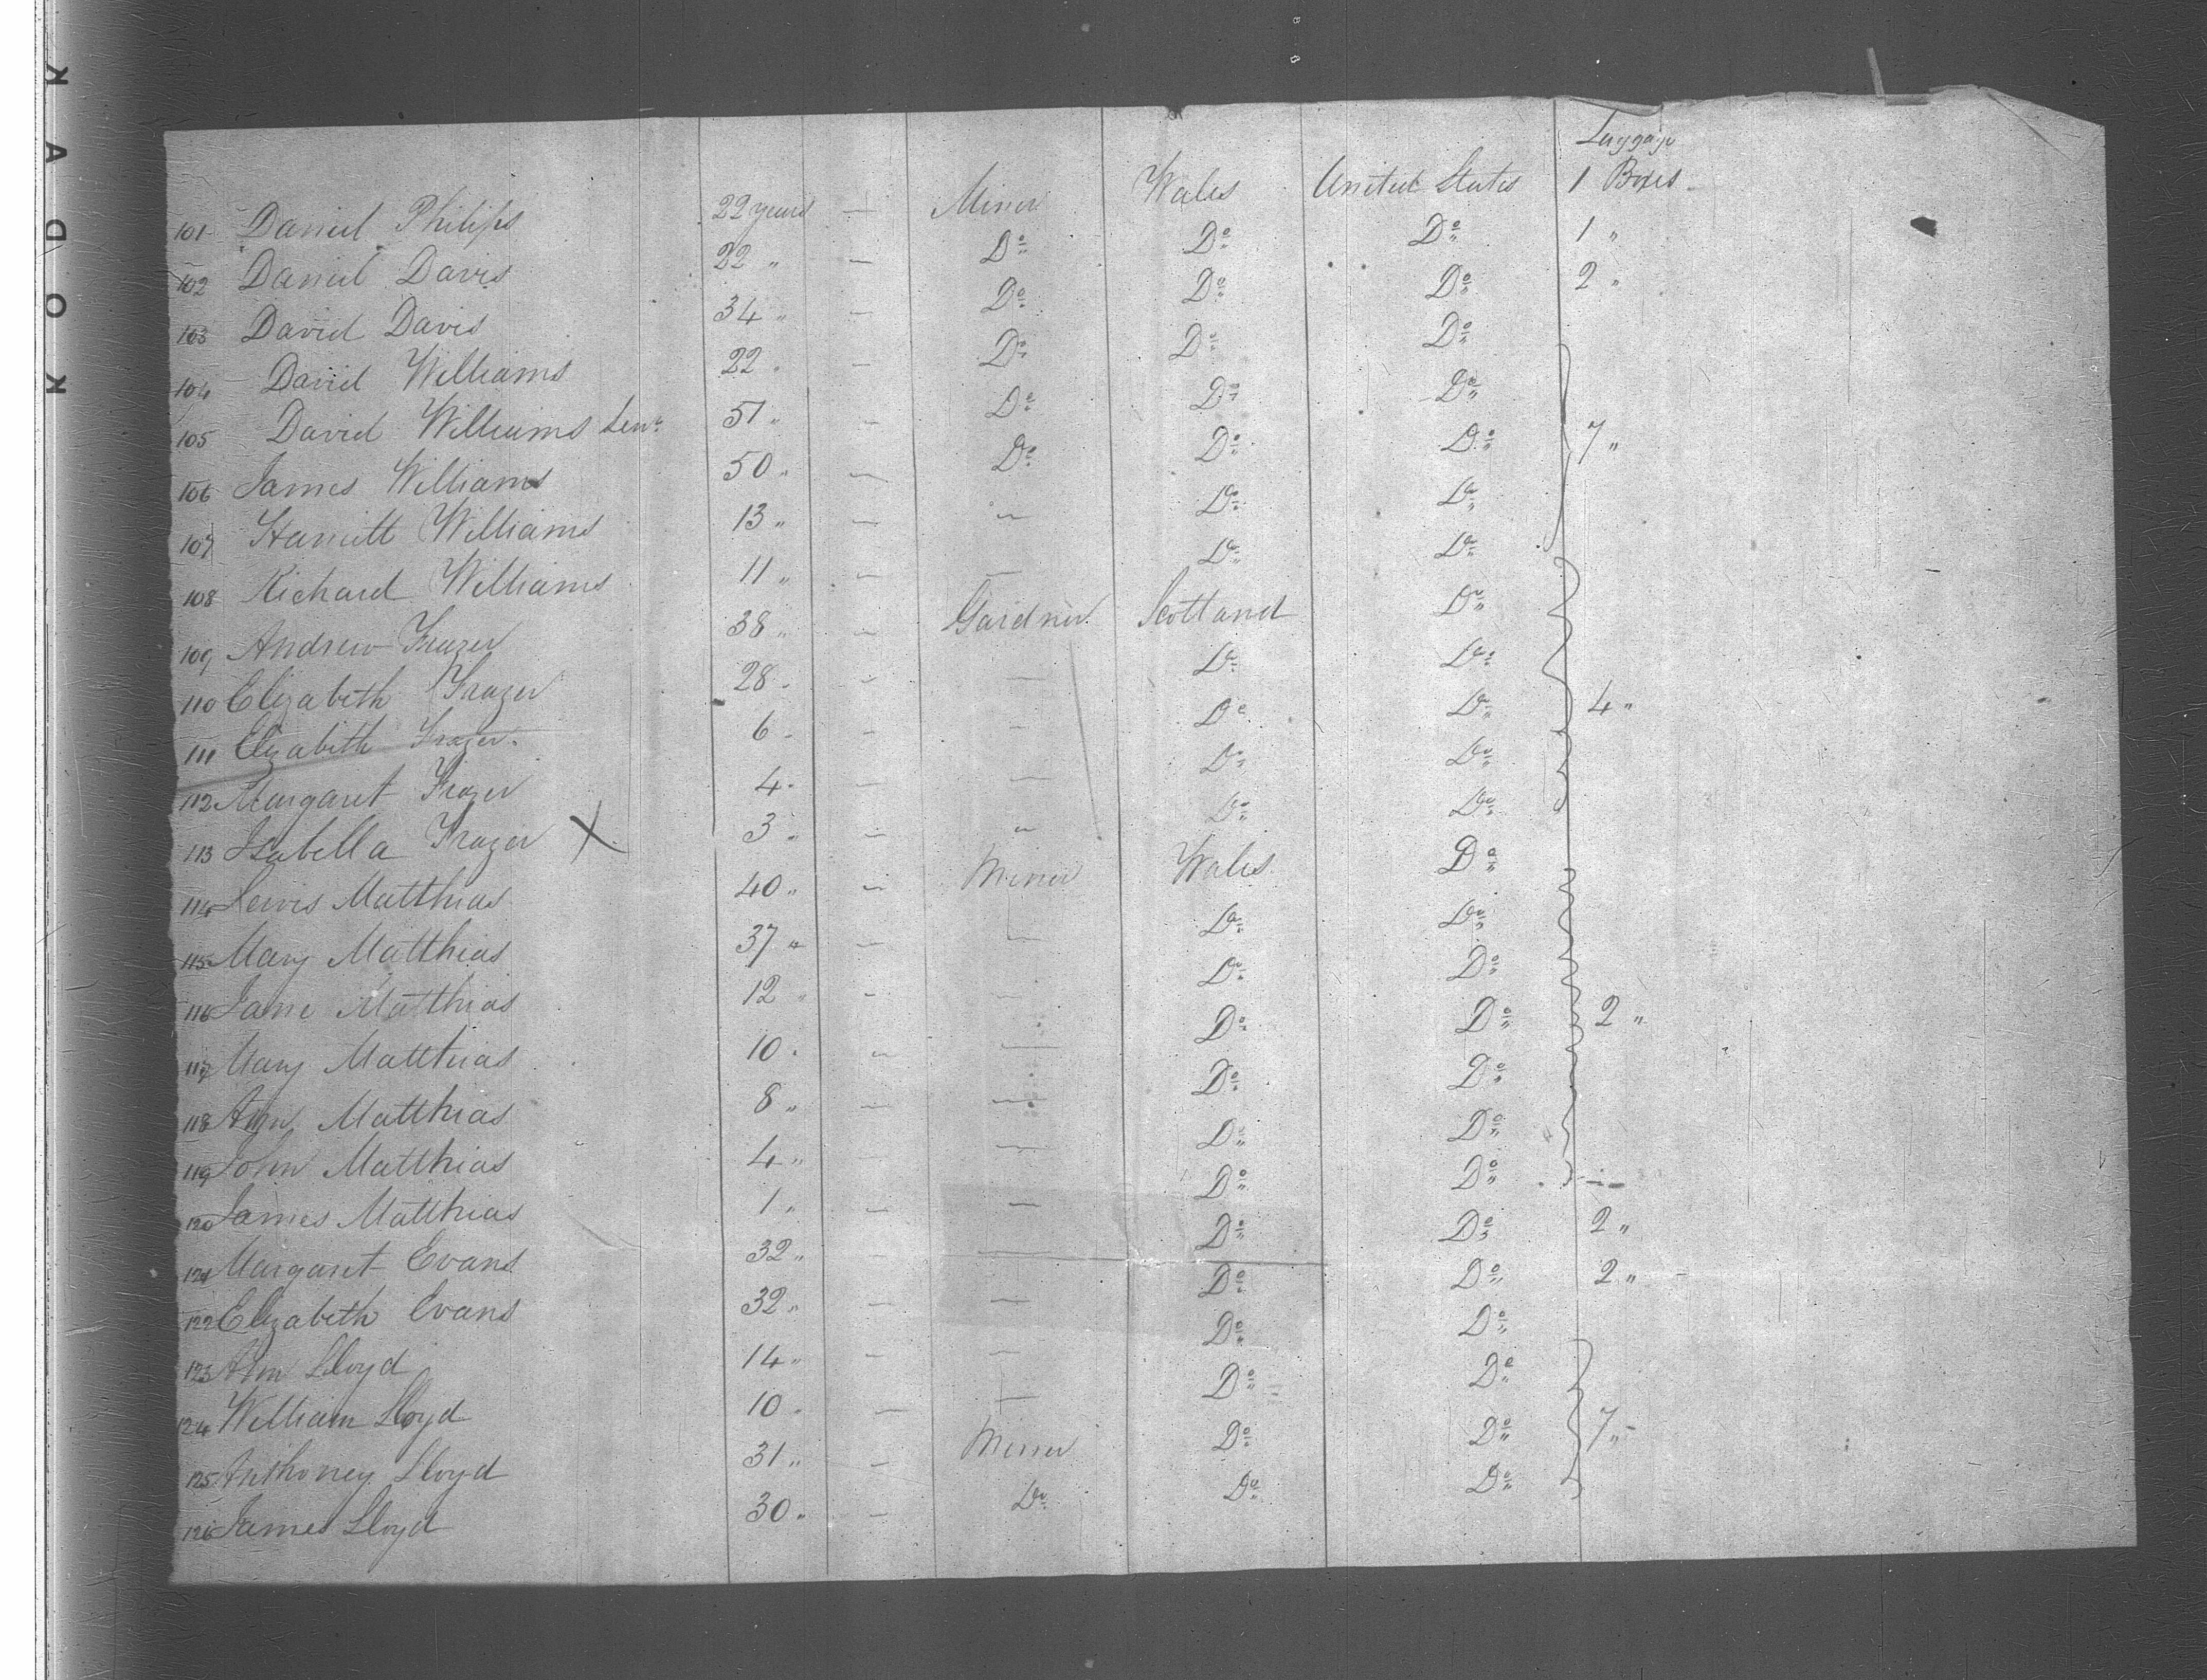 Luggage
101 Daniel Philips 22 years — Miner Wales United States 1 Boxes
102 Daniel Davis 22 " — Do Do Do 1 "
103 David Davis 34 " — Do Do Do 2 "
104 David Williams 22 " — Do Do Do
105 David Williams Senr 51 " — Do Do Do
106 James Williams 50 " — Do Do Do 7 "
107 Harriett Williams 13 " — " Do Do
108 Richard Williams 11 " — — Do Do
109 Andrew Frazer 38 " — Gardner Scotland Do
110 Elizabeth Frazer 28 " — — Do Do
111 Elizabeth Frazer 6 " — — Do Do 4 "
112 Margaret Frazer 4 " — — Do Do
113 Isabella Frazer X 3 " — " Do Do
114 Lewis Matthias 40 " — Miner Wales Do
115 Mary Matthias 37 " — — Do Do
116 Jane Matthias 12 " — — Do Do
117 Mary Matthias 10 " — — Do Do 2 "
118 Ann Matthias 8 " — — Do Do
119 John Matthias 4 " — — Do Do
120 James Matthias 1 " — — Do Do
121 Margaret Evans 32 " — — Do Do 2 "
122 Elizabeth Evans 32 " — — Do Do 2 "
123 Ann Lloyd 14 " — — Do Do
124 William Lloyd 10 " — — Do Do
125 Anthoney Lloyd 31 " — Miner Do Do 7 "
126 James Lloyd 30 " — Do Do Do
KODAK